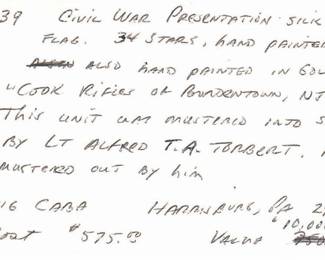 39 CIVIL WAR PRESENTATION SILK
FLAG. 34 STARS, HAND PAINTED
ALSO HAND PAINTED IN GOL
"COOK RIFLES OF BORDENTOWN, NJ
THIS UNIT WAS MUSTERED INTO S
BY LT ALFRED T.A. TORBERT.
MUSTERED OUT BY HIM
16 CABA HARRISBURG, PA 2
$10,000
COST $575.00 VALUE